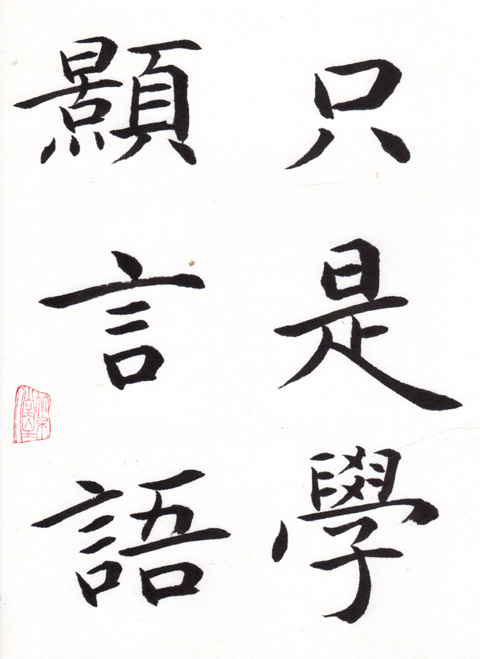 只是學
顥言語